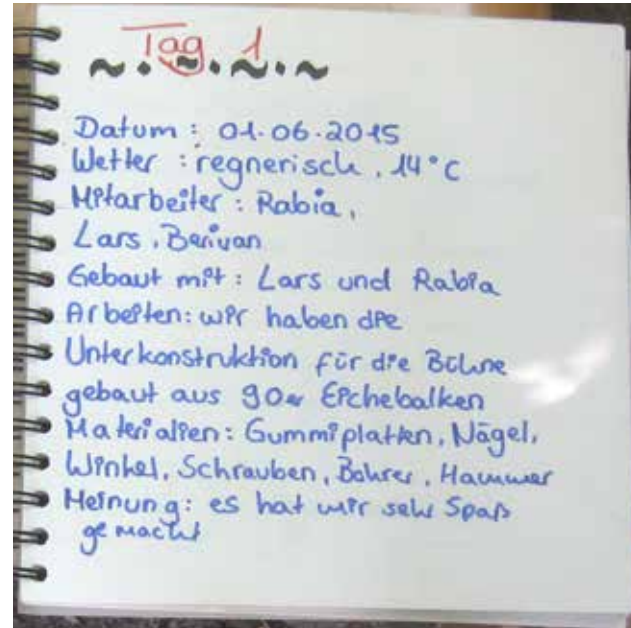 Tag 1
~.~.~.~
Datum: 01.06.2015
Wetter: regnerisch, 14°C
Mitarbeiter: Rabia,
Lars, Berivan
Gebaut mit: Lars und Rabia
Arbeiten: wir haben die
Unterkonstruktion für die Bühne
gebaut aus 90er Eichebalken
Materialien: Gummiplatten, Nägel,
Winkel, Schrauben, Bohrer, Hammer
Meinung: es hat mir sehr Spaß
gemacht